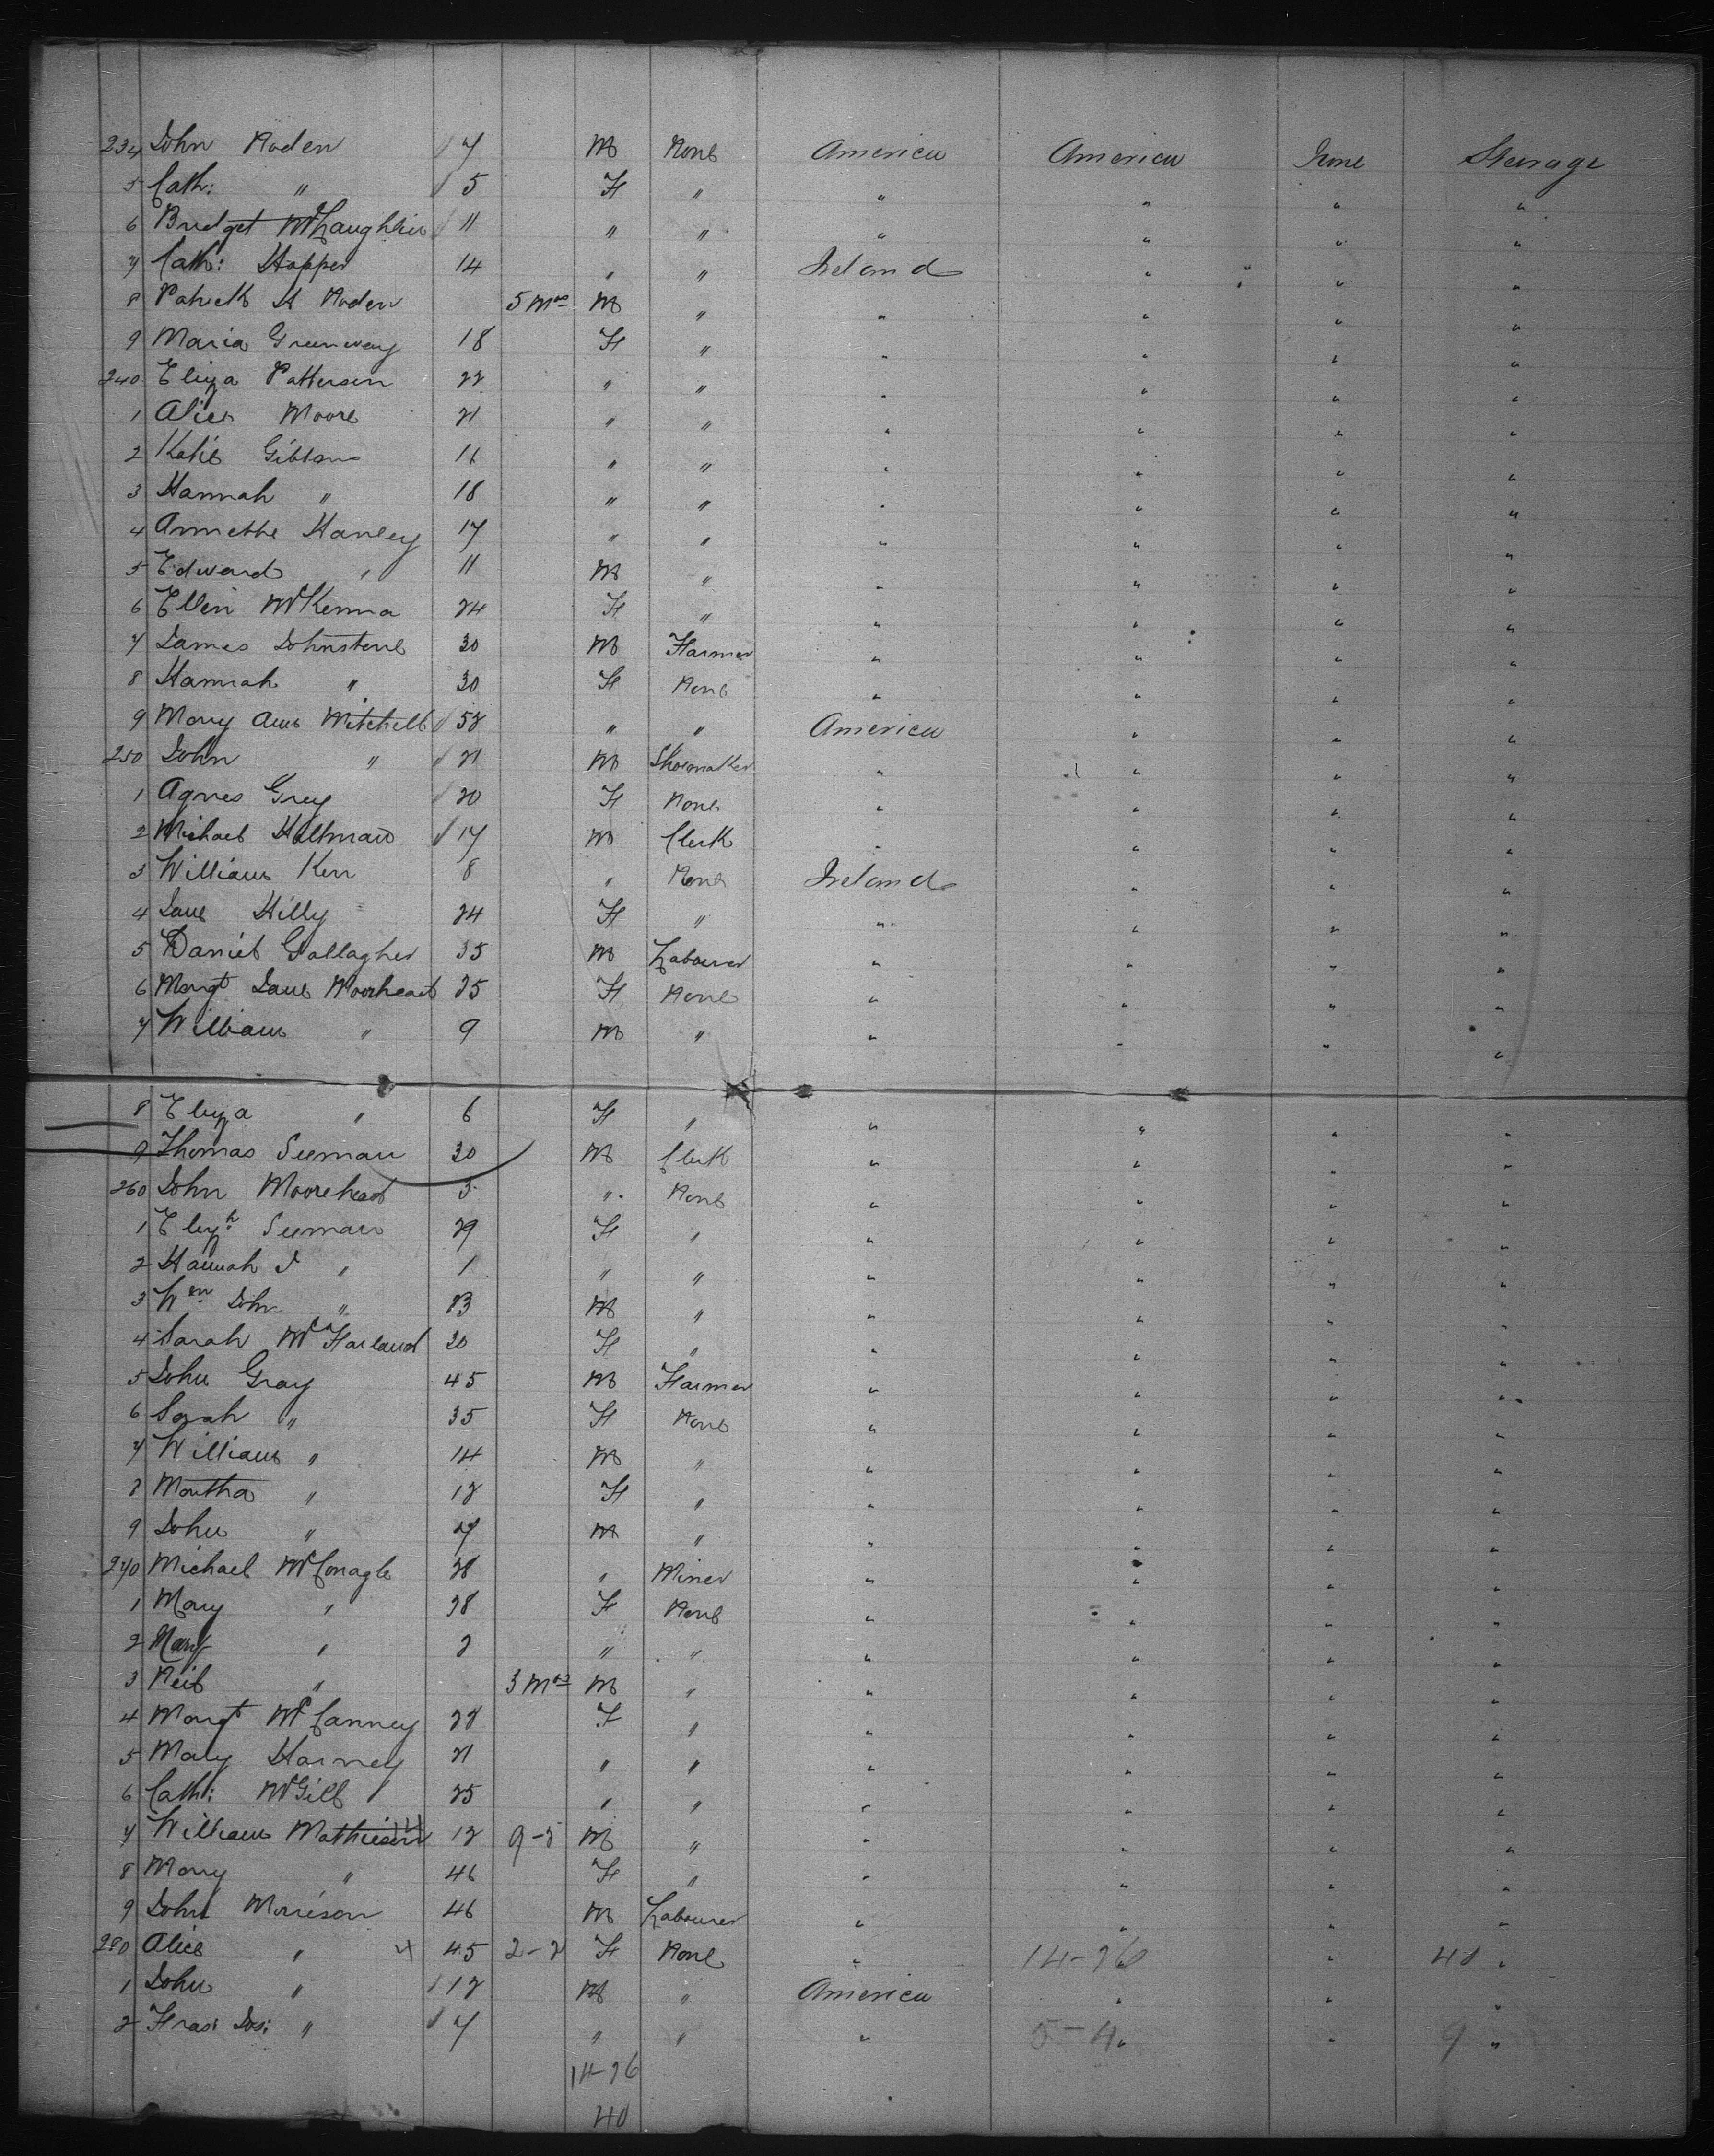 234 John Roden 7 M None America America None Steerage
5 Cath: " 5 F " " " " "
6 Bridget McLaughlin 11 " " " " " "
7 Cath: Hopper 14 " " Ireland " " "
8 Patrick H Roden 5 Mos M " " " " "
9 Maria Greenway 18 F " " " " "
240 Eliza Patterson 22 " " " " " "
1 Alice Moore 21 " " " " " "
2 Katie Gibbons 16 " " " " " "
3 Hannah " 18 " " " " " "
4 Annethe Hanley 17 " " " " " "
5 Edward " 11 M " " " " "
6 Ellen McKenna 24 F " " " " "
7 James Johnstone 30 M Farmer " " " "
8 Hannah " 30 F None " " " "
9 Mary Ann Mitchell 52 " " America " " "
250 John " 21 M Shoemaker " " " "
1 Agnes Grey 20 F None " " " "
2 Michael Holtman 17 M Clerk " " " "
3 William Kerr 8 " None Ireland " " "
4 Jane Hilly 24 F " " " " "
5 Daniel Gallagher 35 M Labourer " " " "
6 Margt Jane Moorhead 35 F None " " " "
7 William " 9 M " " " " "
8 Eliza " 6 F " " " " "
9 Thomas Seeman 30 M Clerk " " " "
260 John Moorehead 3 " None " " " "
1 Elizth Seeman 29 F " " " " "
2 Hannah J " 1 " " " " " "
3 Wm John " M " " " " "
4 Sarah McFarland 30 F " " " " "
5 John Gray 45 M Farmer " " " "
6 Sarah " 35 F None " " " "
7 William " 14 M " " " " "
8 Martha " 12 F " " " " "
9 John " M " " " " "
270 Michael McConagle 28 " Miner " " " "
1 Mary " 28 F None " " " "
2 Mary " 2 " " " " " "
3 Neil " 3 Mos M " " " " "
4 Margt McCanney 28 F " " " " "
5 Mary Harney 21 " " " " " "
6 Cath: McGill 25 " " " " " "
7 William Mathieson 12 9-5 M " " " " "
8 Mary " 46 F " " " " "
9 John Morrison 46 M Labourer " " " "
280 Alice " 4 45 2-2 F None " 14-26 " 40 "
1 John " 12 M " America " " "
2 Fras: Jos: " 7 " " " 5-4 " " 9 "
14-26
40